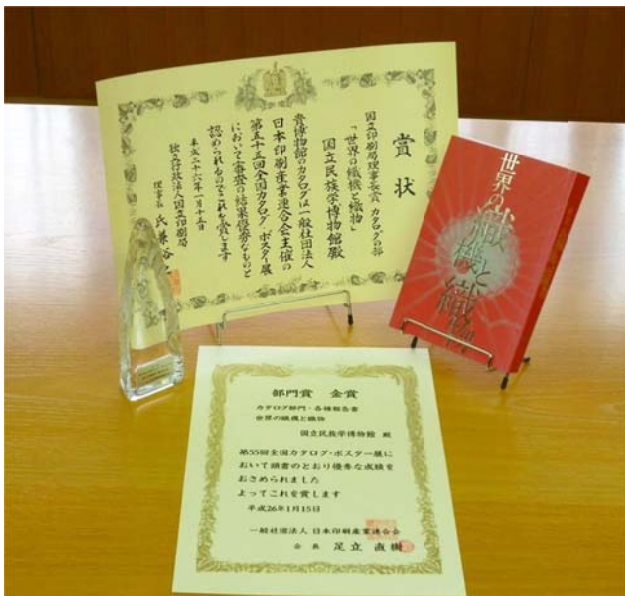 賞状
国立印刷局理事長賞 カタログの部
「世界の織機と織物」
国立民族学博物館殿
貴博物館のカタログは一般社団法人
日本印刷産業連合会主催の
第五十五回全国カタログ・ポスター展
において審査の結果優秀なものと
認められるのでこれを賞します
平成二十六年一月十五日
独立行政法人国立印刷局
理事長 氏兼裕
世界の織機と織物
部門賞 金賞
カタログ部門・各種報告書
世界の織機と織物
国立民族学博物館 殿
第55回全国カタログ・ポスター展に
おいて頭書のとおり優秀な成績を
おさめられました
よってこれを賞します
平成26年1月15日
一般社団法人 日本印刷産業連合会
会長 足立 直樹